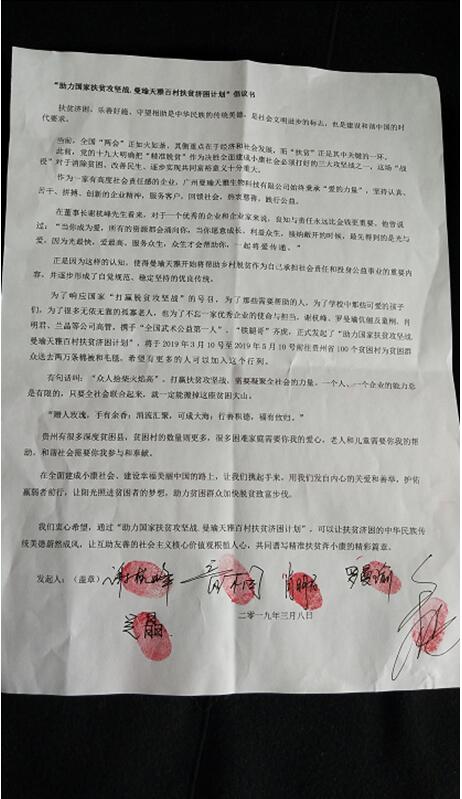 “助力国家扶贫攻坚战.曼瑜天雅百村扶贫拼困计划”倡议书
扶贫济困、乐善好施、守望相助是中华民族的传统美德，是社会文明进步的标志，也是建设和谐中国的时
代要求。
当前，全国“两会”正如火如荼，其侧重点在于经济和社会发展，而“扶贫”正是其中关键的一环。
此前，党的十九大明确把“精准脱贫”作为决胜全面建成小康社会必须打好的三大攻坚战之一，这场“战
役”对于消除贫困、改善民生、逐步实现共同富裕意义十分重大。
作为一家有高度社会责任感的企业，广州曼瑜天雅生物科技有限公司始终秉承“爱的力量”，坚持认真、
苦干、拼搏、创新的企业精神，服务客户，回馈社会，扬表慈善，践行公益。
在董事长谢桄峰先生看来，对于一个优秀的企业和企业家来说，良知与责任永远比会钱更重要。他曾说
过：“当你成为爱，所有的资源都会涌向你，当你愿意成长、利益众生，接纳敞开的时候，最先得到的是光与
爱。因为光最快，爱最高，服务众生，众生才会帮助你，一起将爱传递。”
正是因为这样的认知，使得曼瑜天雅开始将帮助乡村脱贫作为自己承担社会责任和投身公益事业的重要内
容，并逐步形成了自觉规范、稳定坚持的优良传统。
为了响应国家“打赢脱贫攻坚战”的号召，为了那些需要帮助的人，为了学校中那些可爱的孩子
们，为了很多无依无靠的孤寡老人，也为了不忘一家优秀企业的使命与担当，谢桄峰、罗曼瑜伉俪及董桐、肖
明君、兰晶等公司高管，携手“全国武术公益第一人”、“铁腿哥”齐虎，正式发起了“助力国家扶贫攻坚战.
曼瑜天雅百村扶贫济困计划”，将于2019年3月10号至2019年5月10号前往贵州省100个贫困村为贫困群
众送去两万条棉被和毛毯。希望有更多的人可以加入这个行列。
有句话叫：“众人拾柴火焰高”。打赢扶贫攻坚战，需要凝聚全社会的力量。一个人、一个企业的能力总
是有限的，只要全社会联合起来，就一定能搬掉这座贫困大山。
“赠人玫瑰，手有余香；涓流汇聚，可成大海；行善积德，福有攸归。”
贵州有很多深度贫困县，贫困村的数量则更多，很多困难家庭需要你我的爱心，老人和儿童需要你我的帮
助，和谐社会需要你我参与和奉献。
在全面建成小康社会、建设幸福美丽中国的路上，让我们携起手来，用我们发自内心的关爱和善举，护佑
羸弱者前行，让阳光照进贫困者的梦想，助力贫困群众加快脱贫致富步伐。
我们衷心希望，通过“助力国家扶贫攻坚战.曼瑜天雅百村扶贫济困计划”，可以让扶贫济困的中华民族传
统美德蔚然成风，让互助友善的社会主义核心价值观根植人心，共同谱写精准扶贫奔小康的精彩篇章。
发起人：（盖章） 谢桄峰 董桐 肖明君 罗曼瑜
二零一九年三月八日
兰晶